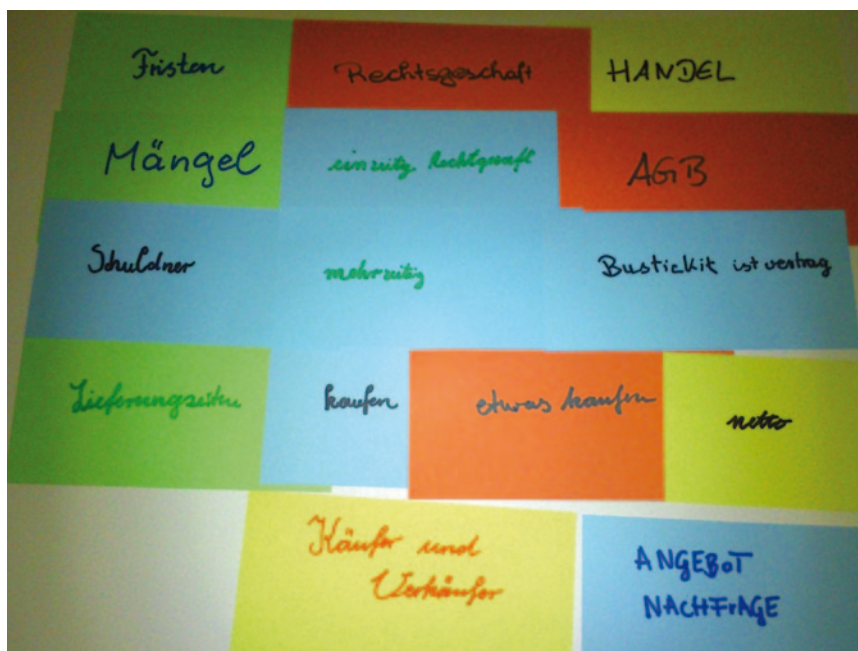 Fristen
Rechtsgeschäft
HANDEL
Mängel
einseitig Rechtgeschäft
AGB
Schuldner
mehrseitig
Bustickit ist vertrag
Lieferungzeiten
kaufen
etwas kaufen
netto
Käufer und
Verkäufer
ANGEBOT
NACHFrAGE